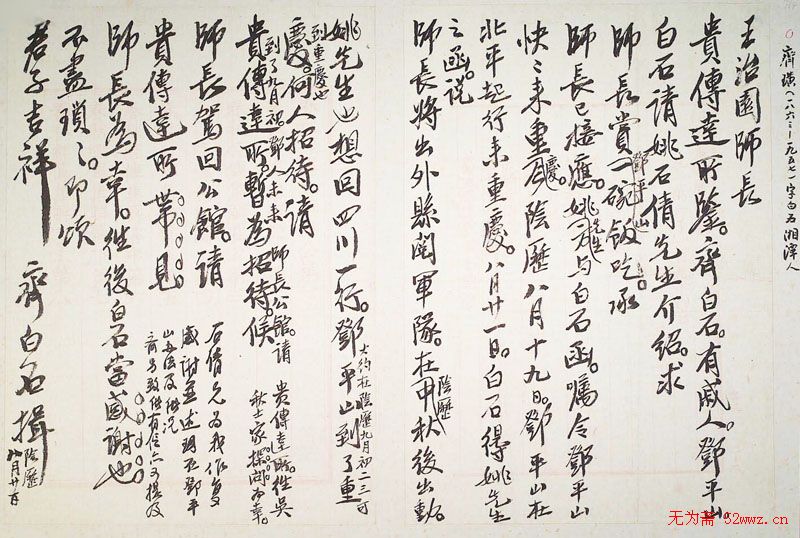 齊璜(一八六三—一九五七)字白石湘潭人
王治園師長
貴傳達所鑒。齊白石。有戚人。鄧平山。
白石請姚石倩先生介紹。求
師長賞鄧平山一碗飯吃。承
師長已接應。姚先生与白石函。囑令鄧平山
快〻來重慶。陰歷八月十九日。鄧平山在
北平起行來重慶。八月廿一日。白石得姚先生
之函。說
師長將出外縣閱軍隊。在陰歷中秋後出動。
姚先生也想回四川一行。鄧平山到了重
大約在陰歷九月初一二三可
到重慶也
慶。何人招待。請
到了九月初鄧人未來師長公館。請
貴傳達所。暫為招待。候
貴傳達所。往吳
秋士家探問為幸。
師長駕回公館。請
貴傳達所帶見
師長為幸。往後白石當感謝也。
石倩兄為我作复
感謝並述明在鄧平
山
不盡瑣〻。即頌
君子吉祥
齊白石揖
陰歷
八月廿一日
无为斋 52wwz.cn